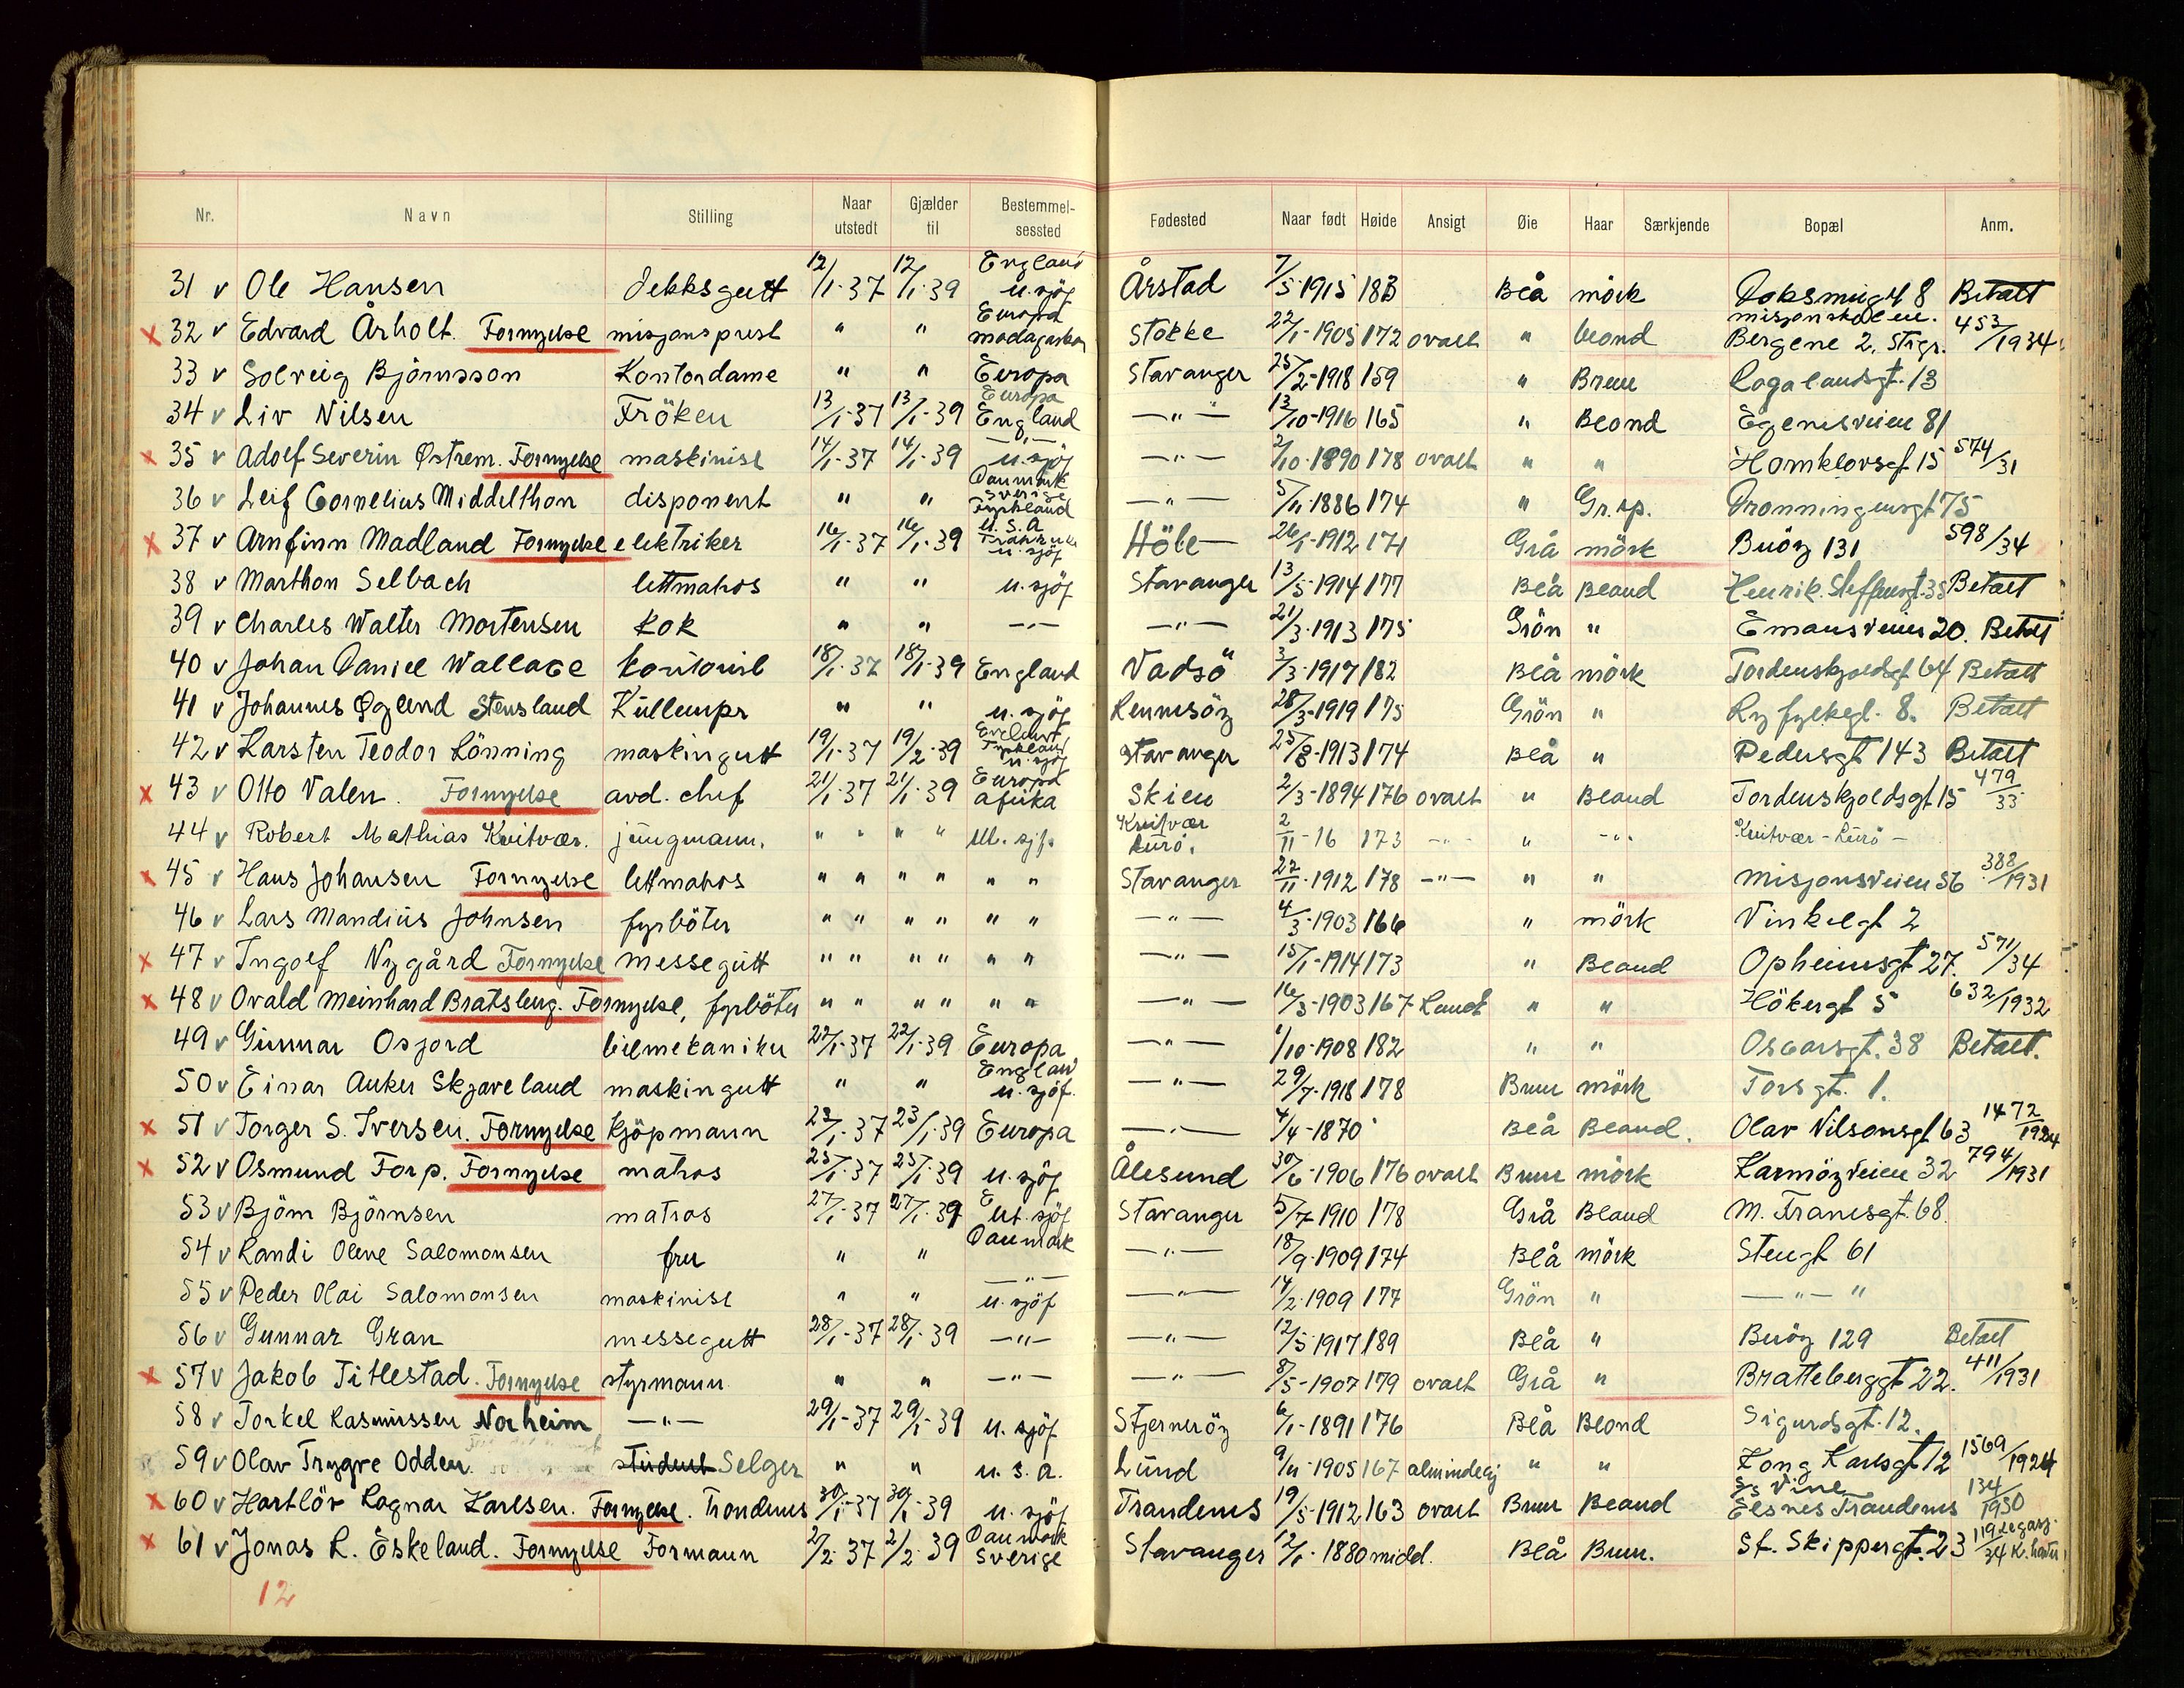 Nr. Navn Stilling Naar utstedt Gjælder til Bestemmel-sessted Fødested Naar født Høide Ansigt Øie Haar Særkjende Bopæl Anm.
31 v Ole Hansen dekksgutt 12/1-37 12/1-39 England u. sjöf Årstad 7/5-1915 183 Blå mörk 8 Betalt
x 32 v Edvard Årholt. Fornyelse misjonsprest " " Europa madagaskar Stokke 22/1-1905 172 ovalt " blond misjonskolen. Bergene 2. Stgr. 453/1934
33 v Solveig Björnsson Kontordame " " Europa Stavanger 25/2-1918 159 " Brun Rogalandsgt. 13
34 v Liv Nilsen Fröken 13/1-37 13/1-39 Europa England —"— 13/10-1916 165 " Blond Egenesveien 81
x 35 v Adolf Severin Østrem. Fornyelse maskinist 14/1-37 14/1-39 —"— u. sjöf —"— 2/10-1890 178 ovalt " " Homklovsgt 15 574/31
36 v Leif Cornelius Middelthon disponent " " Danmark Sverige Tyskland —"— 5/11-1886 174 " Gr.sp. Dronningensgt 75
x 37 v Arnfinn Madland Fornyelse elektriker 16/1-37 16/1-39 U.S.A Frankrike u. sjöf Höle— 26/1-1912 171 Grå mörk Buöy 131 598/34
38 v Marthon Selbach lettmatros " " u. sjöf Stavanger 13/5-1914 177 Blå Bland Henrik Steffensgt. 35 Betalt
39 v Charles Walter Mortensen kok " " —"— —"— 21/3-1913 175 Grön " Emausveien 20. Betalt
40 v Johan Daniel Wallace kontorist 18/1-37 18/1-39 England Vadsö 3/3-1917 182 Blå mörk Tordenskjoldsgt 64 Betalt
41 v Johannes Øglend Stensland Kullemper " " u. sjöf Rennesöy 28/3-1919 175 Grön " Ryfylkegt. 8. Betalt
42 v Karsten Teodor Lönning maskingutt 19/1-37 19/2-39 England Tyskland u. sjöf Stavanger 25/8-1913 174 Blå " Pedersgt 143 Betalt
x 43 v Otto Valen. Fornyelse avd. chef 21/1-37 21/1-39 Europa afrika Skien 2/3-1894 176 ovalt " Bland Tordenskjoldsgt 15 479/33
44 v Robert Mathias Kvitvær. jungmann. " " " " Ut. sjf. Kvitvær Lurö. 2/11-16 173 —"— " —"— Kvitvær - Lurö —
x 45 v Hans Johansen Fornyelse lettmatros " " " " " " Stavanger 22/11-1912 178 —"— " " Misjonsveien 56 388/1931
46 v Lars Mandius Johnsen fyrböter " " " " " " —"— 4/3-1903 166 " mörk Vinkelgt 2
x 47 v Ingolf Nygård Fornyelse messegutt " " " " " " —"— 15/1-1914 173 " Bland Opheimsgt 27. 571/34
x 48 v Ovald Meinhard Bratsberg. Fornyelse, fyrböter " " " " " " —"— 16/3-1903 167 Rundt " " Hökergt 5 632/1932
49 v Gunnar Osjord bilmekaniker 22/1-37 22/1-39 Europa —"— 1/10-1908 182 " " Oscarsgt. 38 Betalt.
50 v Einar Anker Skjæveland maskingutt " " England u. sjöf. —"— 29/7-1918 178 Brun mörk Torsgt. 1.
x 51 v Torger S. Iversen. Fornyelse kjöpmann 23/1-37 23/1-39 Europa —"— 4/4-1870 Blå Bland. Olav Nilsonsgt 63 1472/1924
x 52 v Osmund Forp. Fornyelse matros 25/1-37 25/1-39 u. sjöf Ålesund 30/6-1906 176 ovalt Brun mörk Karmöyveien 32 794/1931
53 v Björn Björnsen matros 27/1-37 27/1-39 E ut. sjöf Stavanger 5/7-1910 178 Grå Bland M. Fransgt. 68
54 v Randi Olene Salomonsen fru " " Danmark —"— 18/9-1909 174 Blå mörk Stengt 61
55 v Peder Olai Salomonsen maskinist " " —"— u. sjöf —"— 14/2-1909 177 Grön " —"— "
56 v Gunnar Gran messegutt 28/1-37 28/1-39 —"— —"— 12/5-1917 189 Blå " Buöy 129 Betalt
x 57 v Jakob Titlestad. Fornyelse styrmann " " —"— —"— 8/5-1907 179 ovalt Grå " Bratteberggt 22. 411/1931
58 v Torkel Rasmussen Norheim —"— 29/1-37 29/1-39 u. sjöf Stjerneröy 6/1-1891 176 Blå Blond Sigurdsgt. 12.
59 v Olav Trygve Odden. student Selger " " u. s. a. Lund 9/11-1905 167 almindelig " " Kong Karlsgt 12 1569/1924
x 60 v Hartlöv Ragnar Karlsen. Fornyelse. Trondenes 30/1-37 30/1-39 u. sjöf Trandenes 19/5-1912 163 ovalt Brun Bland S/S Vine Elsnes Trandenes 134/1930
x 61 v Jonas L. Eskeland. Fornyelse Formann 2/2-37 2/2-39 Danmark Sverige Stavanger 12/1-1880 midd. Blå Brun. St. Skippergt. 23 119/34
12